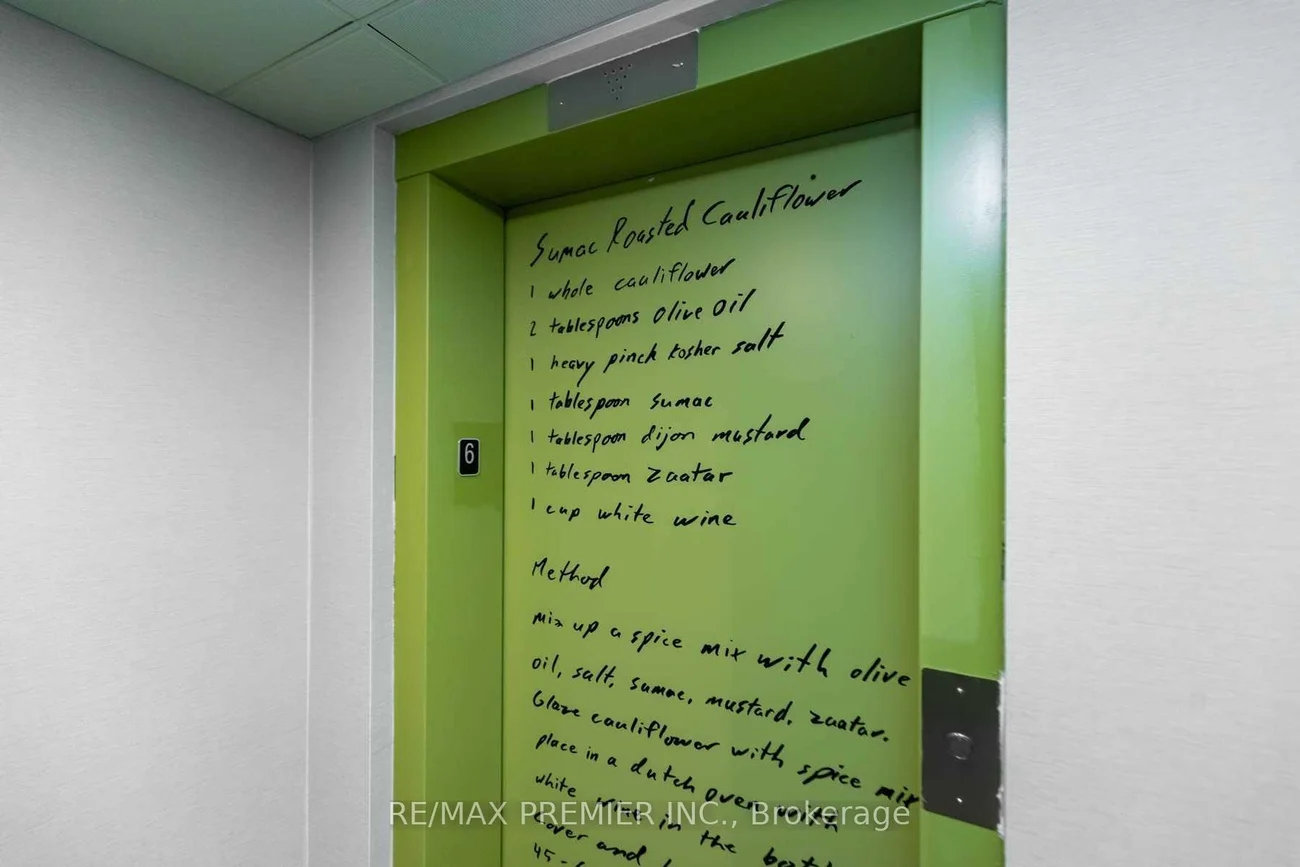 Sumac Roasted Cauliflower
1 whole cauliflower
2 tablespoons olive oil
1 heavy pinch kosher salt
1 tablespoon sumac
1 tablespoon dijon mustard
1 tablespoon zaatar
1 cup white wine
6
Method
mix up a spice mix with olive
oil, salt, sumac, mustard, zaatar.
Glaze cauliflower with spice mix
place in a dutch oven with
white wine in the
RE/MAX PREMIER INC., Brokerage
cover and
45-